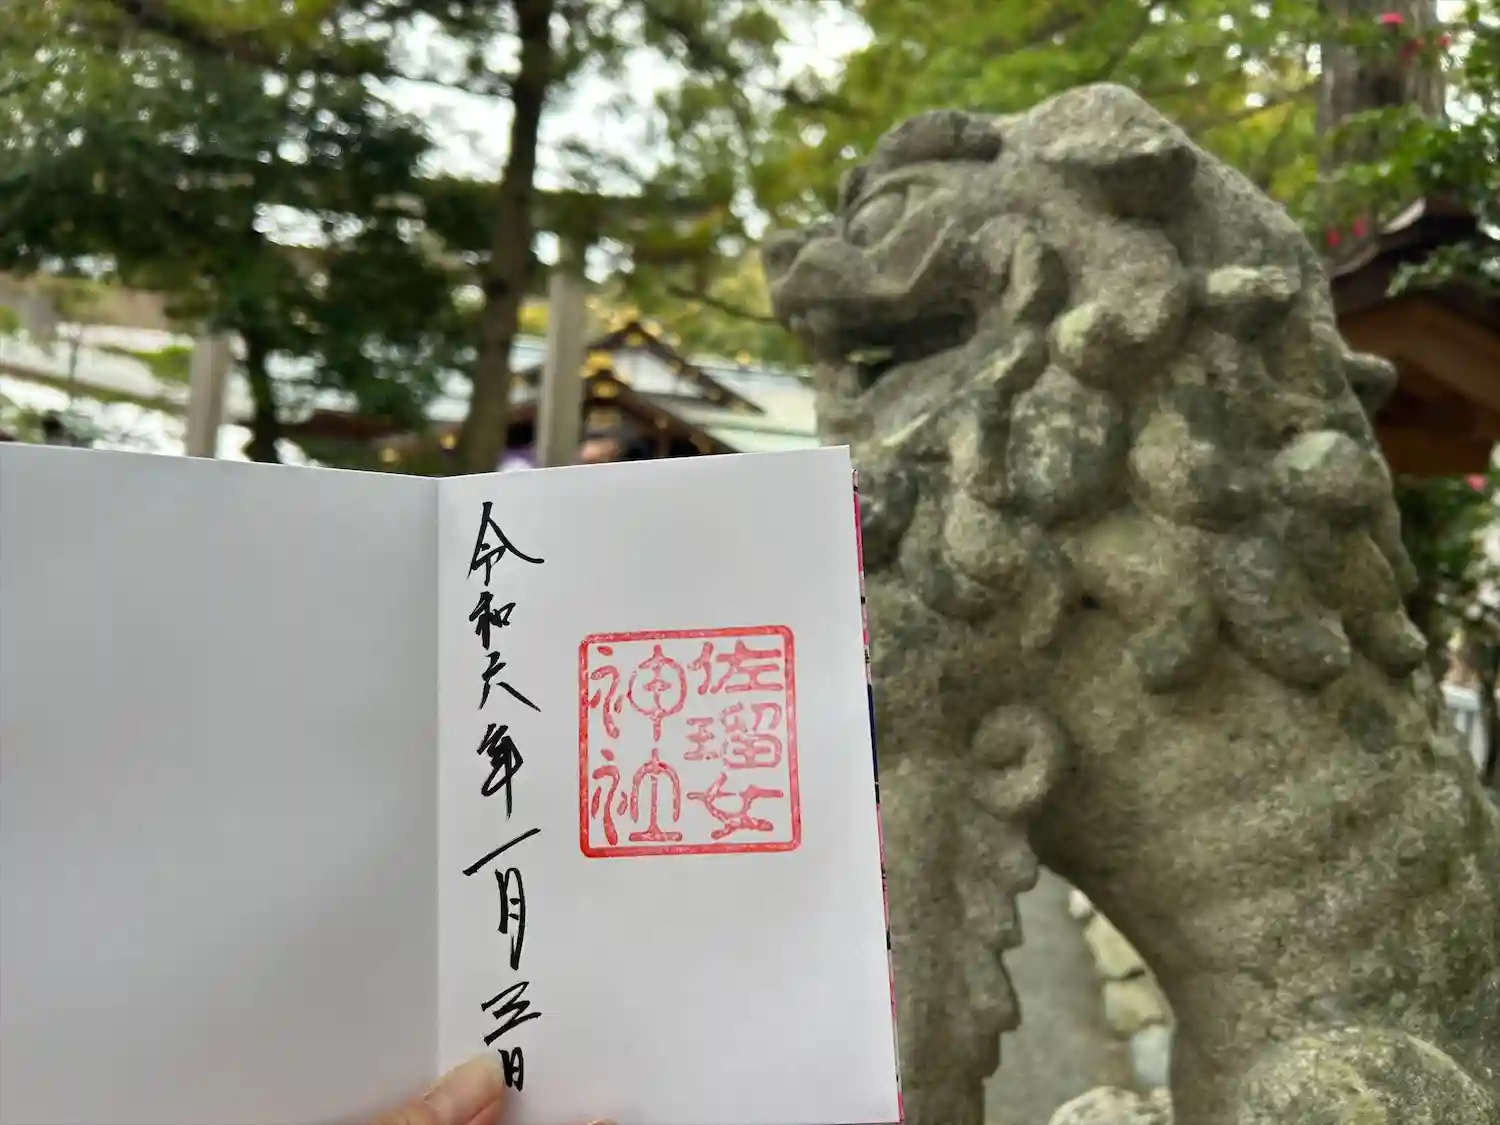 佐瑠女
神社
令和六年一月三日